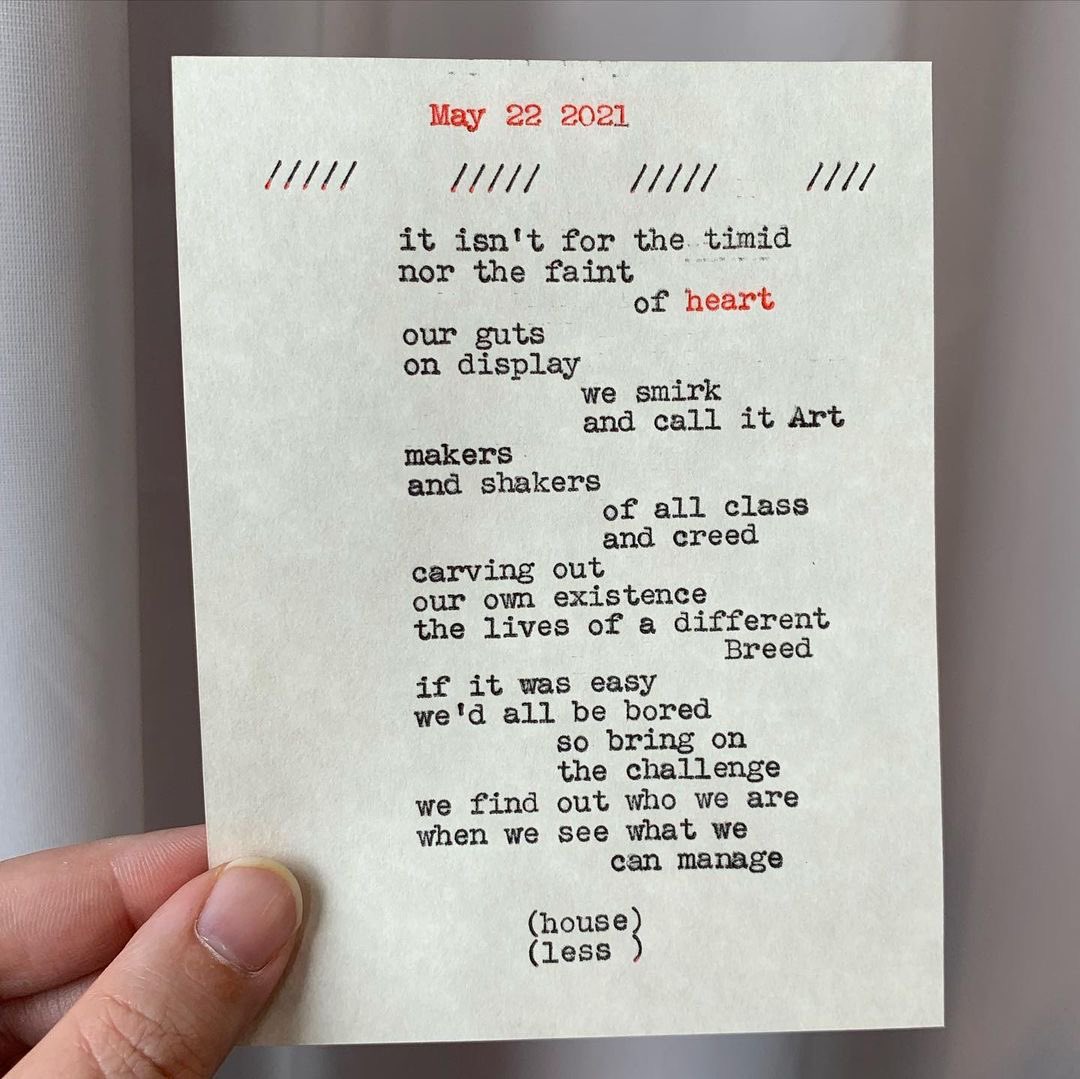 May 22 2021
///// ///// ///// ////
it isn't for the timid
nor the faint
of heart
our guts
on display
we smirk
and call it Art
makers
and shakers
of all class
and creed
carving out
our own existence
the lives of a different
Breed
if it was easy
we'd all be bored
so bring on
the challenge
we find out who we are
when we see what we
can manage
(house)
(less )